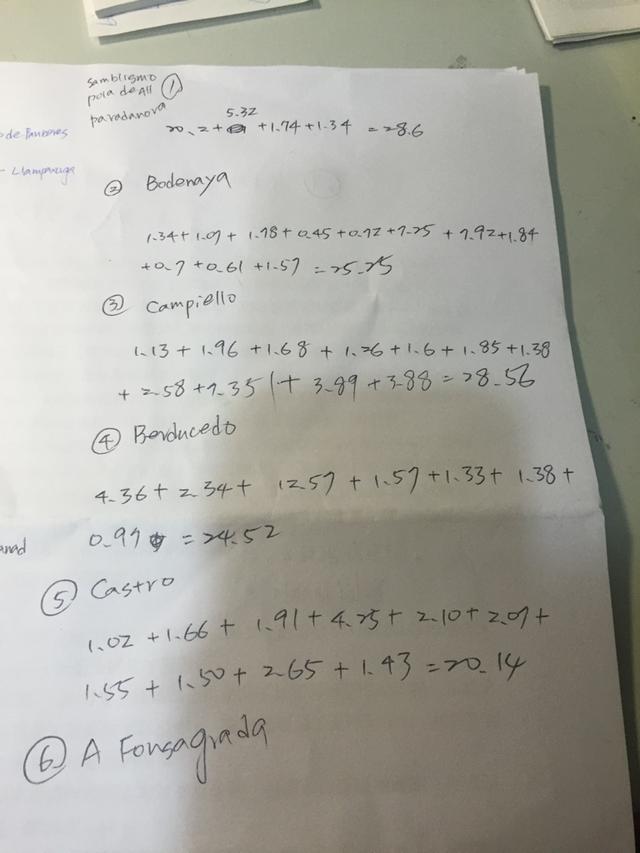 samblismo
pola de All ①
paradanova
5.32
20.2+ +1.74+1.34 =28.6
- Llampariega
② Bodenaya
1.34+1.07+1.78+0.45+0.72+7.25+7.92+1.84
+0.7+0.61+1.57=25.25
③ Campiello
1.13+1.96+1.68+1.26+1.6+1.85+1.38
+2.58+7.35+3.89+3.88=28.56
④ Berducedo
4.36+2.34+ 12.57+1.57+1.33+1.38+
0.97 =24.52
⑤ Castro
1.02+1.66+1.91+4.25+2.10+2.07+
1.55+1.50+2.65+1.43=20.14
⑥ A Fonsagrada